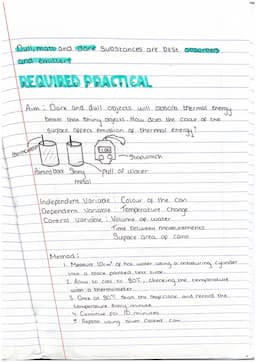 Dull, matt and dark substances are best absorbers
and emitters
REQUIRED PRACTICAL
Aim: Dark and dull objects will absorb thermal energy
better than shiny objects. How does the colour of the
surface affect emission of thermal energy?
Stopwatch
Painted black Shiny full of water
metal
Independent Variable: Colour of the can
Dependent Variable: Temperature change
Control Variable: Volume of water
Time between measurements
Surface area of cans
Method:
1. Measure 50cm³ of hot water using a measuring cylinder
into a black painted test tube.
2. Allow to cool to 80°C, checking the temperature
with a thermometer
3. Once at 80°C start the stopclock and record the
temperature every minute
4. Continue for 10 minutes
5. Repeat using silver coated can.